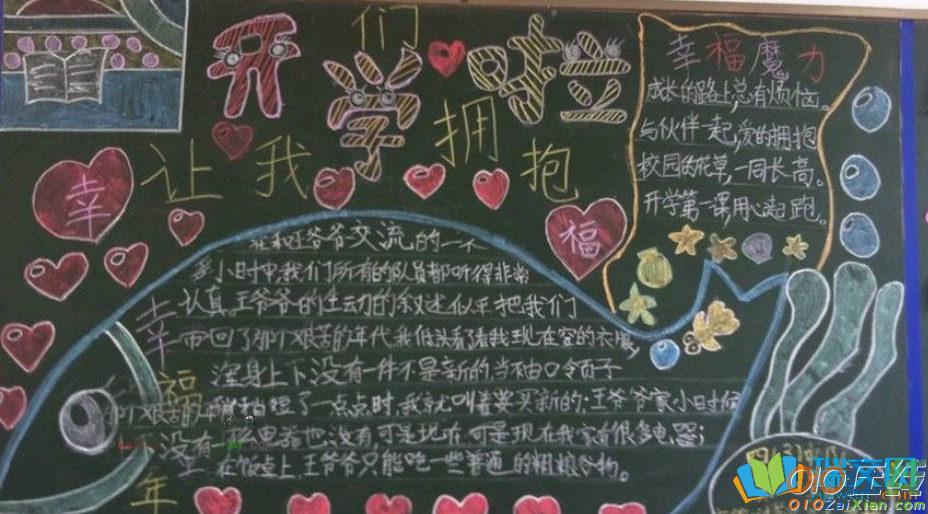 开学啦
让我们拥抱
幸
福
幸福魔力
成长的路上总有烦恼。
与伙伴一起,爱的拥抱
校园的花草,一同长高。
开学第一课用心起跑。
在和王爷爷交流的一个
多小时中,我们所有的队员都听得非常
认真。王爷爷的生动的叙述似乎把我们
带回了那个艰苦的年代,我低头看了看我现在穿的衣服
浑身上下没有一件不是新的,当袖口、领子
稍稍短了一点点时,我就叫着要买新的;王爷爷家小时候
没有什么电器也没有,可是现在,可是现在我家有很多电器;
在饭桌上,王爷爷只能吃一些普通的粗粮谷物。
幸
福
年
010在线
010ZaiXian.com